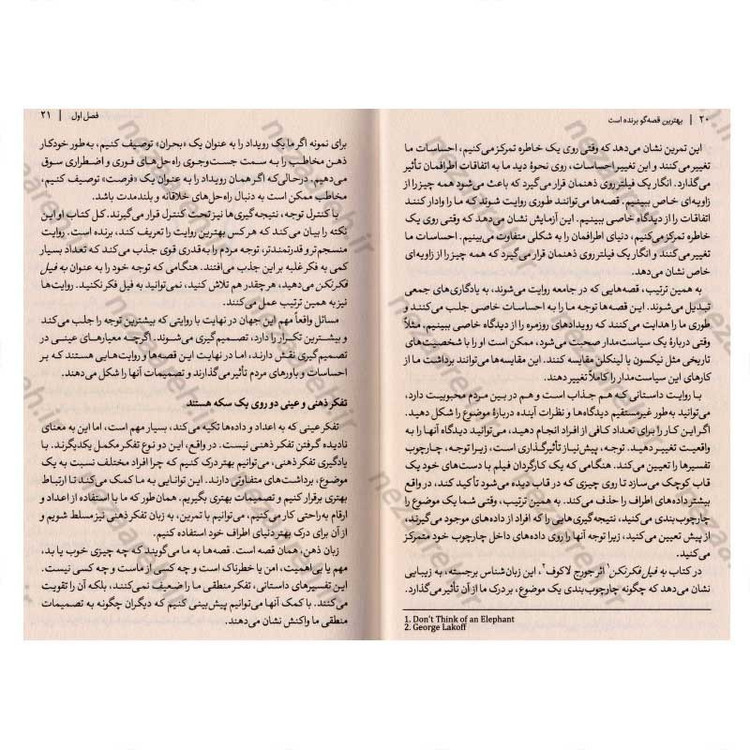 ۲۰ | بهترین قصه‌گو برنده است
این تمرین نشان می‌دهد که وقتی روی یک خاطره تمرکز می‌کنیم، احساسات ما
تغییر می‌کنند و این تغییر احساسات، روی نحوهٔ دید ما به اتفاقات اطرافمان تأثیر
می‌گذارد. انگار یک فیلتر روی ذهنمان قرار می‌گیرد که باعث می‌شود همه چیز را از
زاویه‌ای خاص ببینیم. قصه‌ها می‌توانند طوری روایت شوند که ما را وادار کنند
اتفاقات را از دیدگاه خاصی ببینیم. این آزمایش نشان می‌دهد که وقتی روی یک
خاطره تمرکز می‌کنیم، دنیای اطرافمان را به شکلی متفاوت می‌بینیم. احساسات ما
تغییر می‌کنند و انگار یک فیلتر روی ذهنمان قرار می‌گیرد که همه چیز را از زاویه‌ای
خاص نشان می‌دهد.
به همین ترتیب، قصه‌هایی که در جامعه روایت می‌شوند، به یادگاری‌های جمعی
تبدیل می‌شوند. این قصه‌ها توجه ما را به احساسات خاصی جلب می‌کنند و
طوری ما را هدایت می‌کنند که رویدادهای روزمره را از دیدگاه خاصی ببینیم. مثلاً
وقتی دربارهٔ یک سیاست‌مدار صحبت می‌شود، ممکن است او را با شخصیت‌های
تاریخی مثل نیکسون یا لینکلن مقایسه کنند. این مقایسه‌ها می‌توانند برداشت ما از
کارهای این سیاست‌مدار را کاملاً تغییر دهند.
با روایت داستانی که هم جذاب است و هم در بین مردم محبوبیت دارد،
می‌توانید به‌طور غیرمستقیم دیدگاه‌ها و نظرات آینده دربارهٔ موضوع را شکل دهید.
اگر این کار را برای تعداد کافی از افراد انجام دهید، می‌توانید دیدگاه آنها را به
واقعیت تغییر دهید. توجه، پیش‌نیاز تأثیرگذاری است، زیرا توجه، چارچوب
تفسیرها را تعیین می‌کند. هنگامی که یک کارگردان فیلم با دست‌های خود یک
قاب کوچک می‌سازد تا روی چیزی که در قاب دیده می‌شود تأکید کند، در واقع
بیشتر داده‌های اطراف را حذف می‌کند. به همین ترتیب، وقتی شما یک موضوع را
چارچوب‌بندی می‌کنید، نتیجه‌گیری‌هایی را که افراد از داده‌های موجود می‌گیرند،
از پیش تعیین می‌کنید، زیرا توجه آنها را روی داده‌های داخل چارچوب خود متمرکز
می‌کنید.
در کتاب به فیل فکر نکن¹ اثر جورج لاکوف²، این زبان‌شناس برجسته، به زیبایی
نشان می‌دهد که چگونه چارچوب‌بندی یک موضوع، بر درک ما از آن تأثیر می‌گذارد.
1. Don't Think of an Elephant
2. George Lakoff
فصل اول | ۲۱
برای نمونه اگر ما یک رویداد را به عنوان یک «بحران» توصیف کنیم، به‌طور خودکار
ذهن مخاطب را به سمت جست‌وجوی راه‌حل‌های فوری و اضطراری سوق
می‌دهیم. در حالی‌که اگر همان رویداد را به عنوان یک «فرصت» توصیف کنیم،
مخاطب ممکن است به دنبال راه‌حل‌های خلاقانه و بلندمدت باشد.
با کنترل توجه، نتیجه‌گیری‌ها نیز تحت کنترل قرار می‌گیرند. کل کتاب او این
نکته را بیان می‌کند که هر کس بهترین روایت را تعریف کند، برنده است. روایت
منسجم‌تر و قدرتمندتر، توجه مردم را به‌قدری قوی جذب می‌کند که تعداد بسیار
کمی به فکر غلبه بر این جذب می‌افتند. هنگامی که توجه خود را به عنوان به فیل
فکر نکن می‌دهید، هر چقدر هم تلاش کنید، نمی‌توانید به فیل فکر نکنید. روایت‌ها
نیز به همین ترتیب عمل می‌کنند.
مسائل واقعاً مهم این جهان در نهایت با روایتی که بیشترین توجه را جلب می‌کند
و بیشترین تکرار را دارد، تصمیم‌گیری می‌شوند. اگرچه معیارهای عینی در
تصمیم‌گیری نقش دارند، اما در نهایت این قصه‌ها و روایت‌هایی هستند که بر
احساسات و باورهای مردم تأثیر می‌گذارند و تصمیمات آنها را شکل می‌دهند.
تفکر ذهنی و عینی دو روی یک سکه هستند
تفکر عینی که به اعداد و داده‌ها تکیه می‌کند، بسیار مهم است، اما این به معنای
نادیده گرفتن تفکر ذهنی نیست. در واقع، این دو نوع تفکر مکمل یکدیگرند. با
یادگیری تفکر ذهنی، می‌توانیم بهتر درک کنیم که چرا افراد مختلف نسبت به یک
موضوع، برداشت‌های متفاوتی دارند. این توانایی به ما کمک می‌کند تا ارتباط
بهتری برقرار کنیم و تصمیمات بهتری بگیریم. همان‌طور که ما با استفاده از اعداد و
ارقام به‌راحتی کار می‌کنیم، می‌توانیم با تمرین، به زبان تفکر ذهنی نیز مسلط شویم و
از آن برای درک بهتر دنیای اطراف خود استفاده کنیم.
زبان ذهن، همان قصه است. قصه‌ها به ما می‌گویند که چه چیزی خوب یا بد،
مهم یا بی‌اهمیت، امن یا خطرناک است و چه کسی از ماست و چه کسی نیست.
این تفسیرهای داستانی، تفکر منطقی ما را ضعیف نمی‌کنند، بلکه آن را تقویت
می‌کنند. با کمک آنها می‌توانیم پیش‌بینی کنیم که دیگران چگونه به تصمیمات
منطقی ما واکنش نشان می‌دهند.